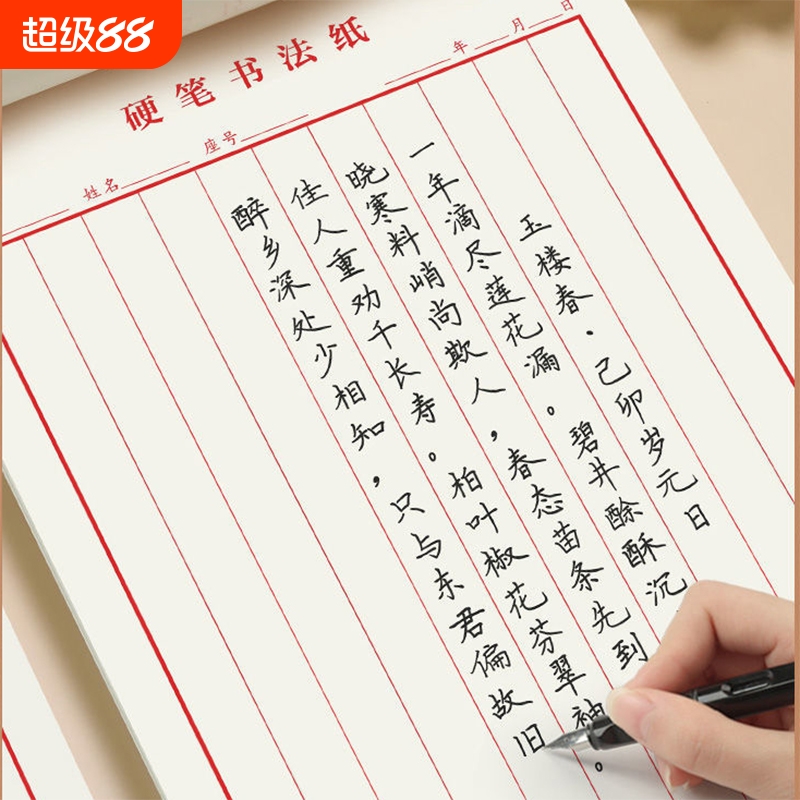 超级88
硬笔书法纸
姓名 座号 年 月 日
玉楼春·己卯岁元日
一年滴尽莲花漏。碧井酴酥沉
晓寒料峭尚欺人，春态苗条先到
佳人重劝千长寿。柏叶椒花芬翠袖。
醉乡深处少相知，只与东君偏故旧